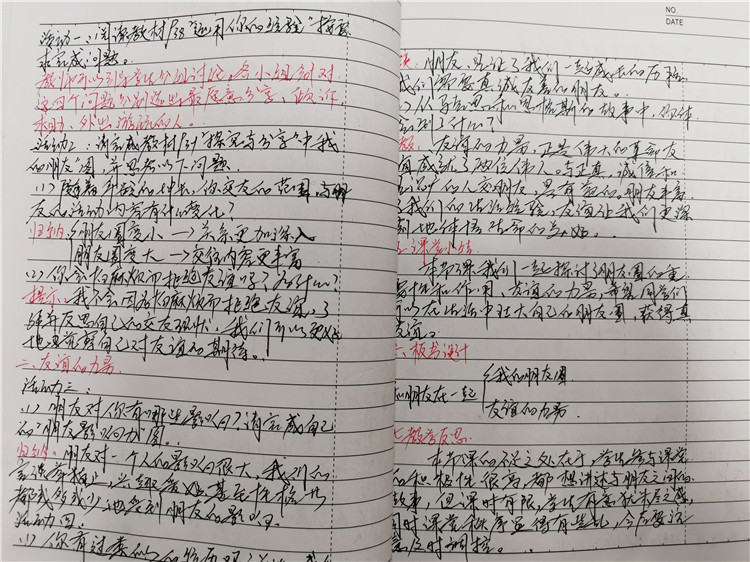 活动一：阅读教材P38"运用你的经验"按要
求完成问题。
教师可以引导学生分组讨论，各小组针对
这四个问题分别选出最愿意分享、倾诉、
求助、外出游玩的人。
活动2：请完成教材P39"探究与分享"中我
的朋友圈，并思考以下问题。
(1) 随着年龄的增长，你交友的范围，与朋
友的活动内容有什么变化？
归纳：朋友圈变小→关系更加深入
朋友圈变大→交往内容更丰富
(2) 你会怕麻烦而拒绝友谊吗？为什么？
提示：我不会因为怕麻烦而拒绝友谊。了
解并反思自己的交友现状，我们可以更好
地理解自己对友谊的期待。
二、友谊的力量
活动三：
(1) 朋友对你有哪些影响？请完成自己
的"朋友影响力"圈。
归纳：朋友对一个人的影响很大，我们的
言谈举止、兴趣爱好甚至性格此
都或多或少地受到朋友的影响。
活动四：
(1) 你有过类似的
NO.
DATE
朋友，见证了我们一起成长的历程
我们需要真诚友善的朋友。
(2) 从马克思和恩格斯的故事中，你体
会到了什么？
友谊的力量。正是伟大的革命友
谊成就了两位伟人。与正直、诚信和
的人交朋友，是有益的。朋友丰富
了我们的生活经验，友谊让我们更深
刻地体悟生命的美好。
五、课堂小结
本节课我们一起探讨了朋友圈的重
要性和作用、友谊的力量，希望同学们
可以在生活中壮大自己的朋友圈，获得真
友谊。
六、板书设计
我的朋友圈
和朋友在一起
友谊的力量
七、教学反思
本节课的不足之处在于，学生参与课堂
的积极性很高，都想讲述与朋友之间的
故事，但课时有限，学生有意犹未尽之感，
同时课堂秩序显得有些乱，今后要注
意及时调控。